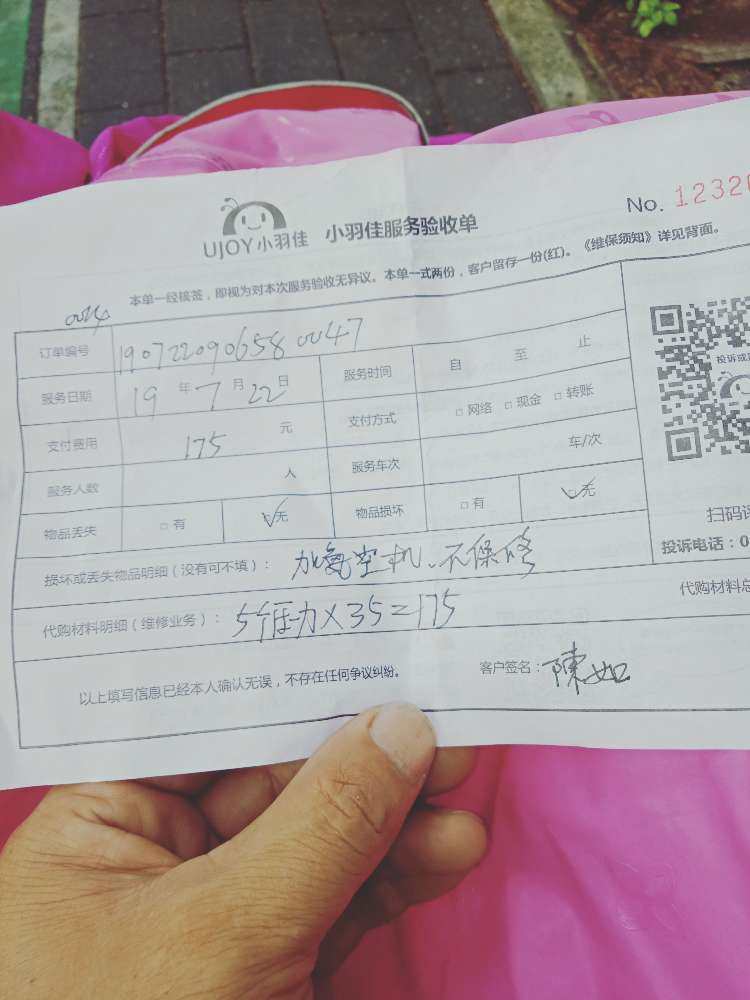 No. 1232
UJOY小羽佳 小羽佳服务验收单
本单一经核签，即视为对本次服务验收无异议。本单一式两份，客户留存一份(红)。《维保须知》详见背面。
订单编号 1907220906580047
服务日期 19 年 7 月 22 日 服务时间 自 至 止
支付费用 175 元 支付方式 □ 网络 □ 现金 □ 转账
服务人数 人 服务车次 车/次
物品丢失 □ 有 ☑无 物品损坏 □ 有 ☑无
投诉或
扫码评
投诉电话：0
损坏或丢失物品明细（没有可不填）： 加氟空机、不保修
代购材料明细（维修业务）： 5 压力×35=175
代购材料总
以上填写信息已经本人确认无误，不存在任何争议纠纷。 客户签名：陳如